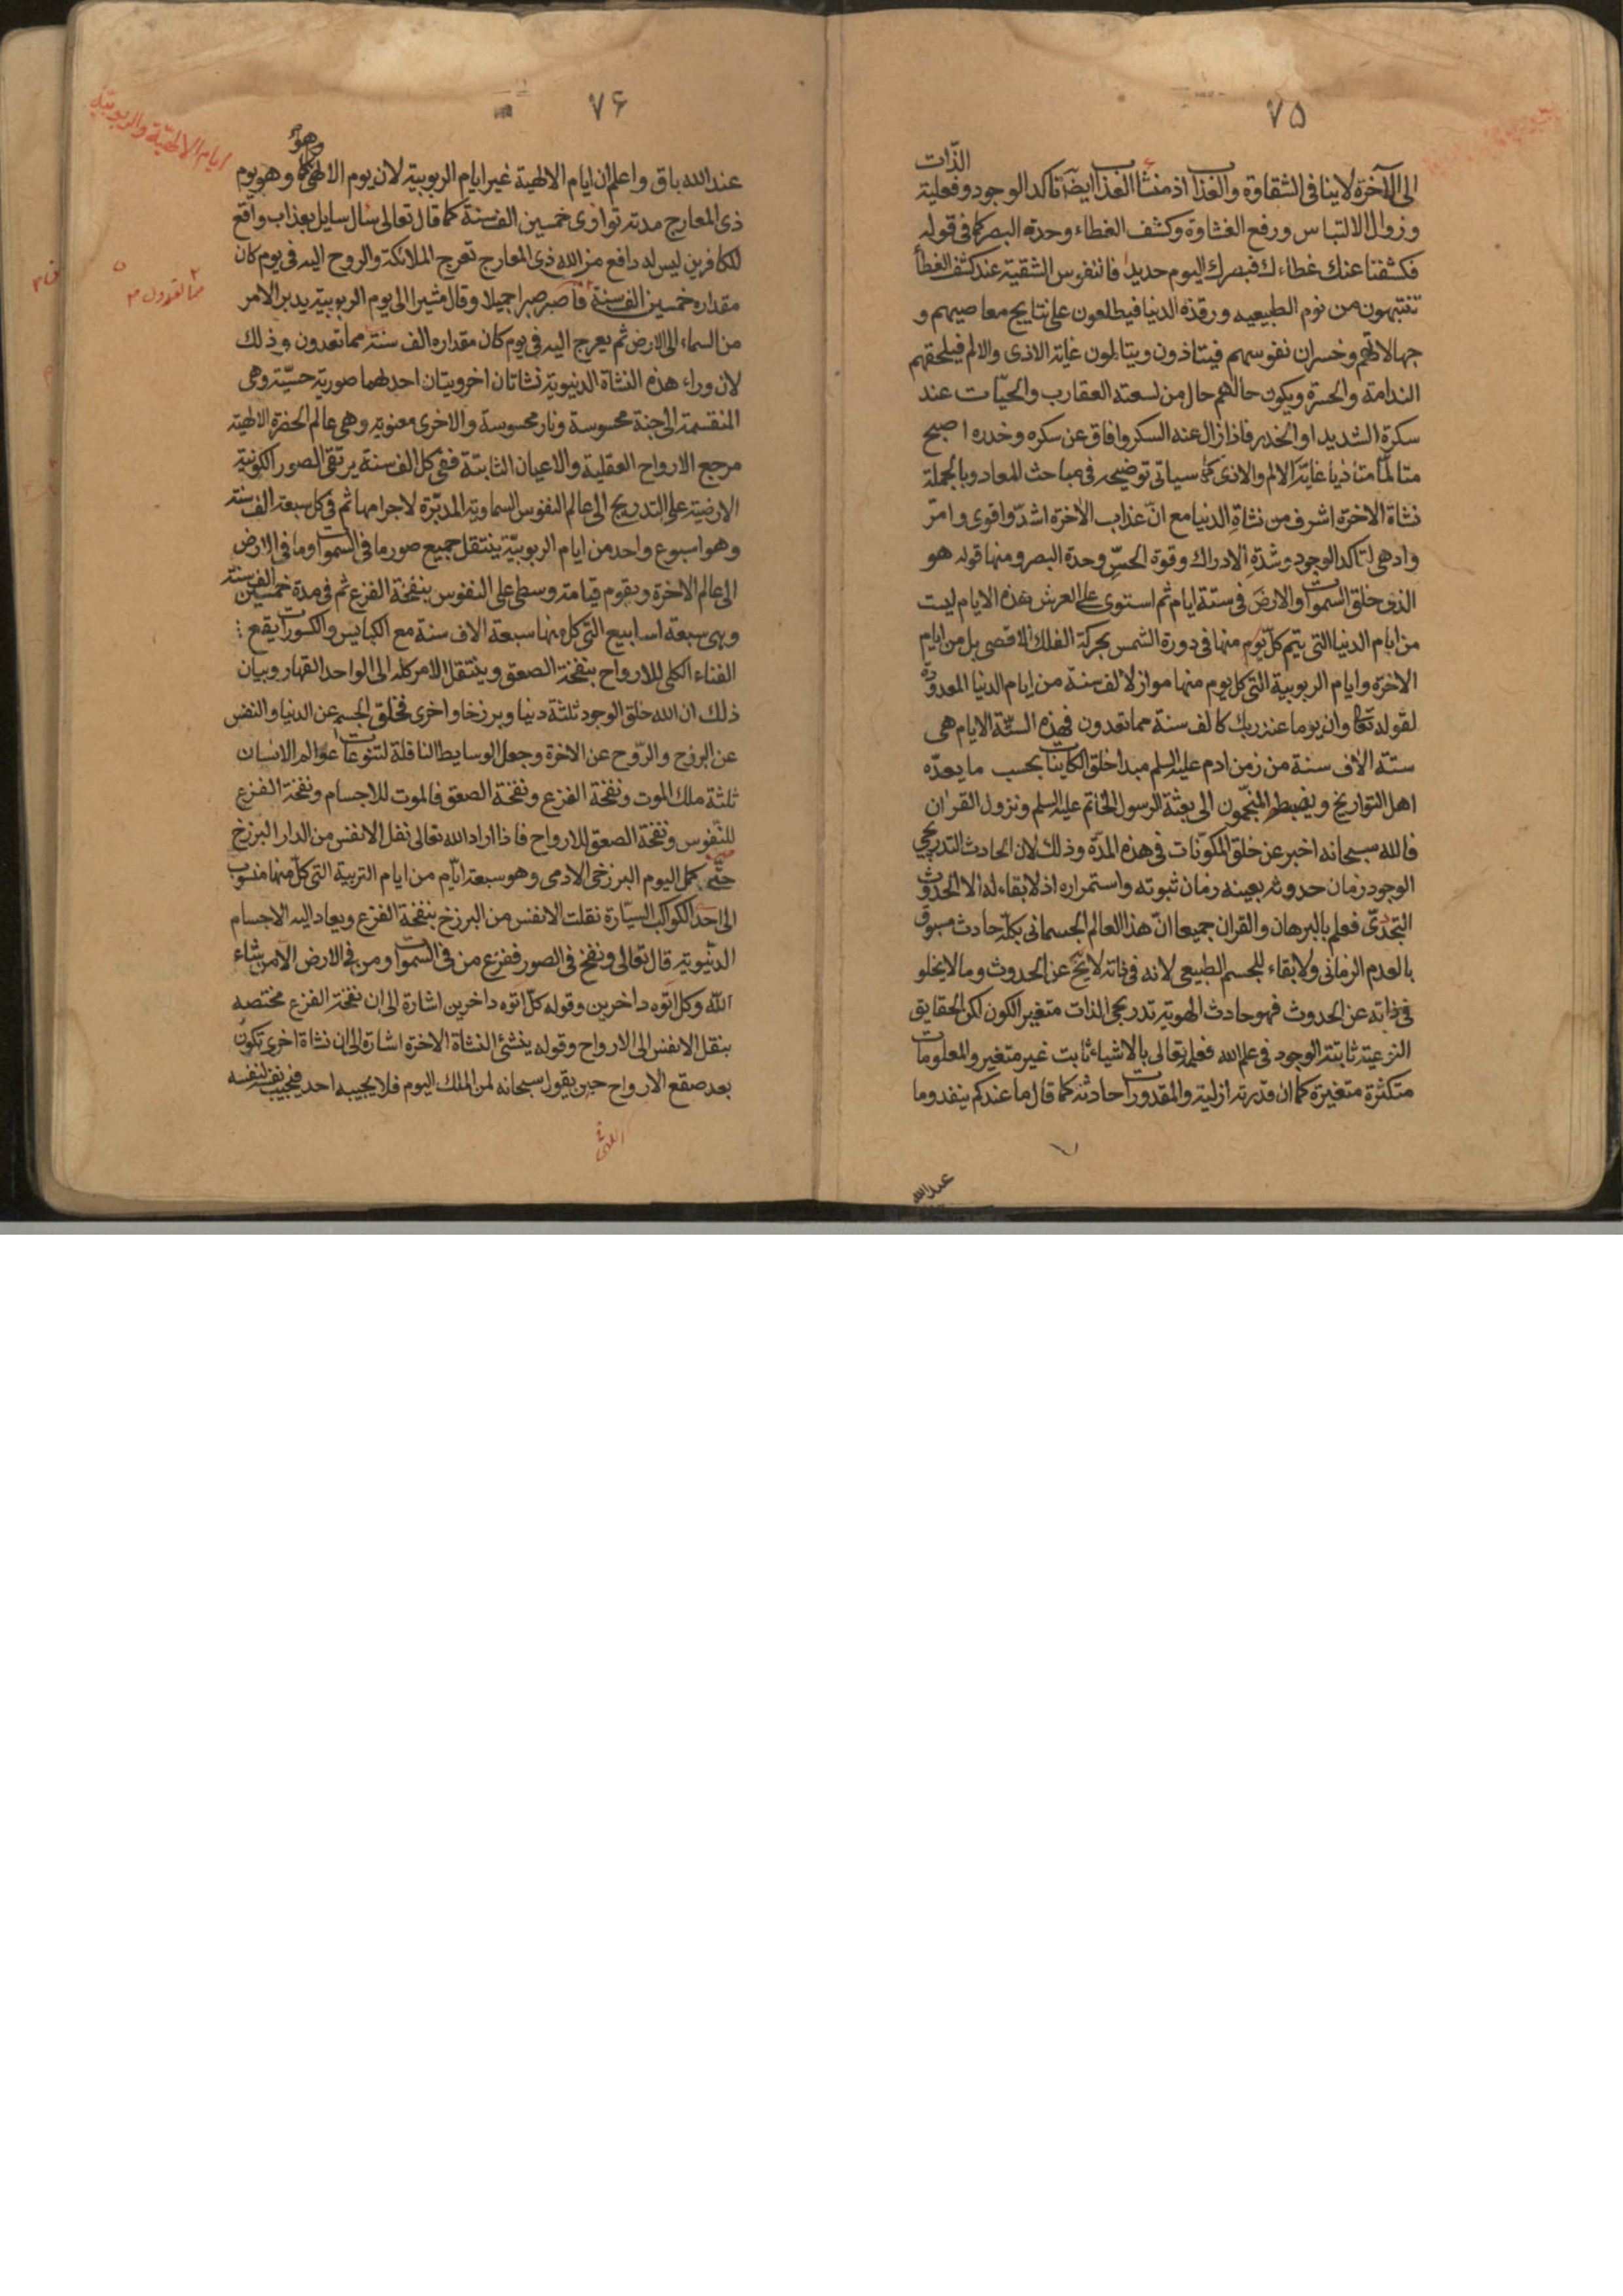 ۷۵
الى الآخرة لا ينافى الشقاوة والعذاب اذ منشأ العذاب ايضا تأكد الوجود وفعلية الذّات
وزوال الالتباس ورفع الغشاوة وكشف الغطاء وحدة البصر كما فى قوله
فكشفنا عنك غطاءك فبصرك اليوم حديد فالنفوس الشقية عند كشف الغطأ
تنتبهون من نوم الطبيعيه ورقدة الدنيا فيطلعون على نتايج معاصيهم و
جهالاتهم وخسران نفوسهم فيتاذون ويتالمون غاية الاذى والالم فيلحقهم
الندامة والحسرة ويكون حالهم حال من لسعته العقارب والحيّات عند
سكرة الشديد او الخدر فاذا زال عنه السكر وافاق عن سكره وخدره اصبح
متالمّا متأذيا غاية الالم والاذى كما سياتى توضيحه فى مباحث المعاد وبالجملة
نشاة الاخرة اشرف من نشاةِ الدنيا مع انّ عذاب الاخرة اشدّ واقوى وامرّ
وادهى لتاكد الوجود وشدةِ الادراك وقوة الحسّ وحدة البصر ومنها قوله هو
الذى خلق السموات والارض فى ستة ايام ثم استوى على العرش هذه الايام ليست
من ايام الدنيا التى يتم كلّ يوم منها فى دورة الشمس بحركة الفلك الاقصى بل من ايام
الاخرة وايام الربوبية التى كل يوم منها مواز لالف سنة من ايام الدنيا المعدودة
لقوله تعا وان يوما عند ربك كالف سنة مما تعدون فهذه الستّة الايام هى
ستة الاف سنة من زمن ادم عليه السلم مبدا خلق الكاينات بحسب ما يعدّه
اهل التواريخ ويضبطه المنجّمون الى بعثة الرسول الخاتم عليه السلم ونزول القرآن
فالله سبحانه اخبر عن خلق المكوّنات فى هذه المدّة وذلك لان الحادث التدريجي
الوجود زمان حدوثه بعينه زمان ثبوته واستمراره اذ لا بقاء له الا الحدوث
التجدّدى فعلم بالبرهان والقران جميعا انّ هذا العالم الجسمانى بكلّه حادث مسبوق
بالعدم الزمانى ولا بقاء للجسم الطبيعى لانه فى ذاته لا يخ عن الحدوث وما لا يخلو
فى ذاته عن الحدوث فهو حادث الهوية تدريجى الذات متغير الكون لكن الحقايق
النوعية ثابتة الوجود فى علم الله فعلمه تعالى بالاشياء ثابت غير متغير والمعلومات
متكثرة متغيرة كما ان قدرته ازلية والمقدورات حادثة كما قال ما عندكم ينفد وما
عبدالله
۷۶
ايام الالهيّة والربوبيّة
وهو
عند الله باق واعلم ان ايام الالهية غير ايام الربوبية لان يوم الالهى وهو يوم
ذى المعارج مدته توازى خمسين الف سنة كما قال تعالى سأل سايل بعذاب واقع
للكافرين ليس له دافع من الله ذى المعارج تعرج الملائكة والروح اليه فى يوم كان
مما تعدون
مقداره خمسين الف سنة فاصبر صبرا جميلا وقال مشيرا الى يوم الربوبية يدبر الامر
من السماء الى الارض ثم يعرج اليه فى يوم كان مقداره الف سنة مما تعدون وذلك
لان وراء هذه النشاة الدنيوية نشاتان اخرويتان احدٰهما صورية حسيّة وهى
المنقسمة الى جنة محسوسة ونار محسوسة والاخرى معنوية وهى عالم الحضرة الالهية
مرجع الارواح العقلية والاعيان الثابتة ففى كل الف سنة يرتقى الصور الكونية
الارضية على التدريج الى عالم النفوس السماوية المدبّرة لاجرامها ثم فى كل سبعة الف سنة
وهو اسبوع واحد من ايام الربوبيّة ينتقل جميع صور ما فى السموات وما فى الارض
الى عالم الاخرة ويقوم قيامة وسطى على النفوس بنفخة الفزع ثم فى مدة خمسين الف سنة
وهى سبعة اسابيع التى كل منها سبعة الاف سنة مع الكبايس والكسورات يقع
الفناء الكلى للارواح بنفخة الصعق وينتقل الامر كله الى الواحد القهار وبيان
ذلك ان الله خلق الوجود ثلثة دنيا وبرزخا واخرى فخلق الجسم عن الدنيا والنفس
عن البرزخ والرّوح عن الاخرة وجعل الوسايط الناقلة لتنوعات عوالم الانسان
ثلثة ملك الموت ونفخة الفزع ونفخة الصعق فالموت للاجسام ونفخة الفزع
للنّفوس ونفخة الصعق للارواح فاذا اراد الله تعالى نقل الانفس من الدار البرزخ
حتّى كمل اليوم البرزخى الادمى وهو سبعة ايّام من ايام التربية التى كلّ منها منسوب
الى احد الكواكب السيّارة نقلت الانفس من البرزخ بنفخة الفزع ويعاد اليه الاجسام
الدنيوية قال تعالى ونفخ فى الصور ففزع من فى السموات ومن فى الارض الا من شاء
الله وكل اتوه داخرين وقوله كلّ اتوه داخرين اشارة الى ان نفخة الفزع مختصه
بنقل الانفس الى الارواح وقوله ينشئ النشاة الاخرة اشارة الى ان نشاة اخرى تكون
بعد صقع الارواح حين يقول سبحانه لمن الملك اليوم فلا يجيبه احد فيجيب نفسه لنفسه